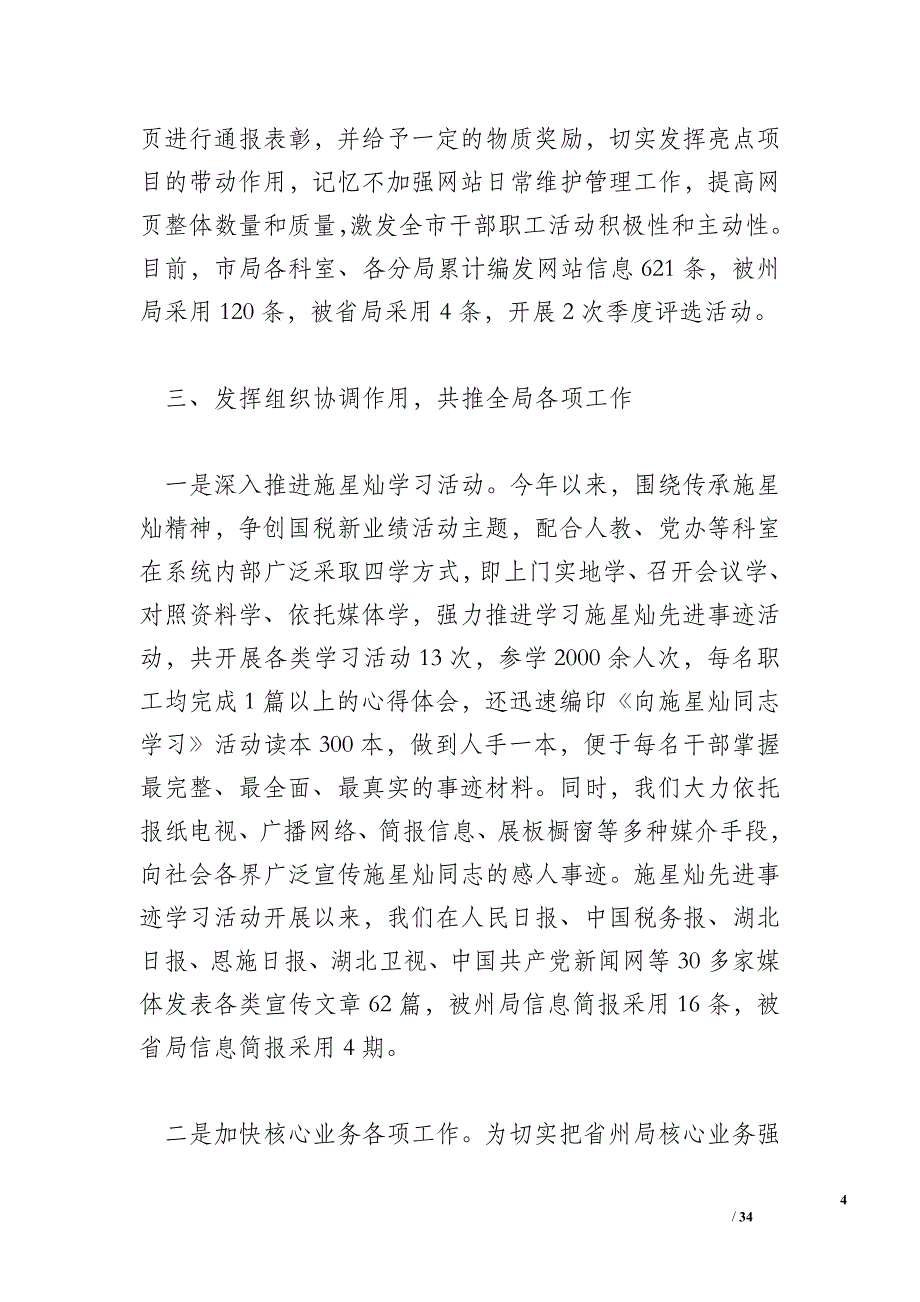 页进行通报表彰，并给予一定的物质奖励，切实发挥亮点项
目的带动作用，记忆不加强网站日常维护管理工作，提高网
页整体数量和质量，激发全市干部职工活动积极性和主动性。
目前，市局各科室、各分局累计编发网站信息 621 条，被州
局采用 120 条，被省局采用 4 条，开展 2 次季度评选活动。
三、发挥组织协调作用，共推全局各项工作
一是深入推进施星灿学习活动。今年以来，围绕传承施星
灿精神，争创国税新业绩活动主题，配合人教、党办等科室
在系统内部广泛采取四学方式，即上门实地学、召开会议学、
对照资料学、依托媒体学，强力推进学习施星灿先进事迹活
动，共开展各类学习活动 13 次，参学 2000 余人次，每名职
工均完成 1 篇以上的心得体会，还迅速编印《向施星灿同志
学习》活动读本 300 本，做到人手一本，便于每名干部掌握
最完整、最全面、最真实的事迹材料。同时，我们大力依托
报纸电视、广播网络、简报信息、展板橱窗等多种媒介手段，
向社会各界广泛宣传施星灿同志的感人事迹。施星灿先进事
迹学习活动开展以来，我们在人民日报、中国税务报、湖北
日报、恩施日报、湖北卫视、中国共产党新闻网等 30 多家媒
体发表各类宣传文章 62 篇，被州局信息简报采用 16 条，被
省局信息简报采用 4 期。
二是加快核心业务各项工作。为切实把省州局核心业务强
4
/ 34